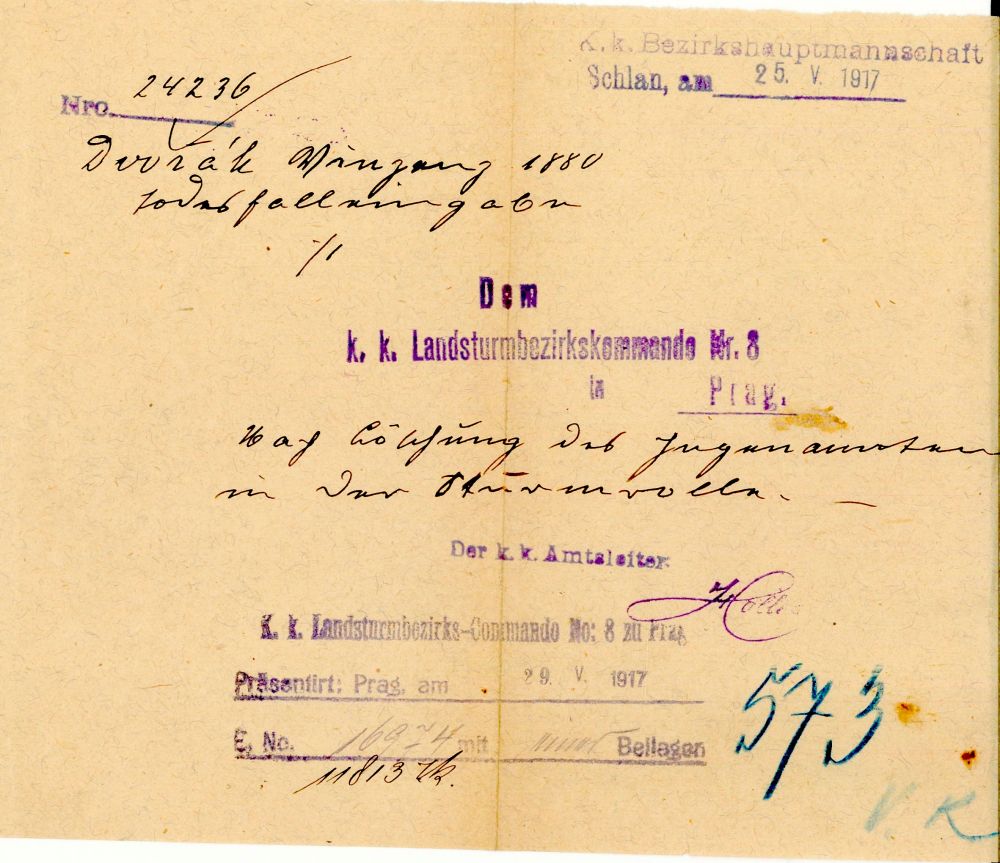 K. k. Bezirkshauptmannschaft
Schlan, am 25. V. 1917
Nro. 24236
Dvořák Vinzenz 1880
Todesfalleingabe
./1
Dem
k. k. Landsturmbezirkskommando Nr. 8
in Prag.
Nach Löschung des
in der Sturmrolle.
Der k. k. Amtsleiter
K. k. Landsturmbezirks-Commando No: 8 zu Prag
Präsentirt: Prag, am 29. V. 1917
E. No. 16974 mit Beilagen
11813
573
V. K